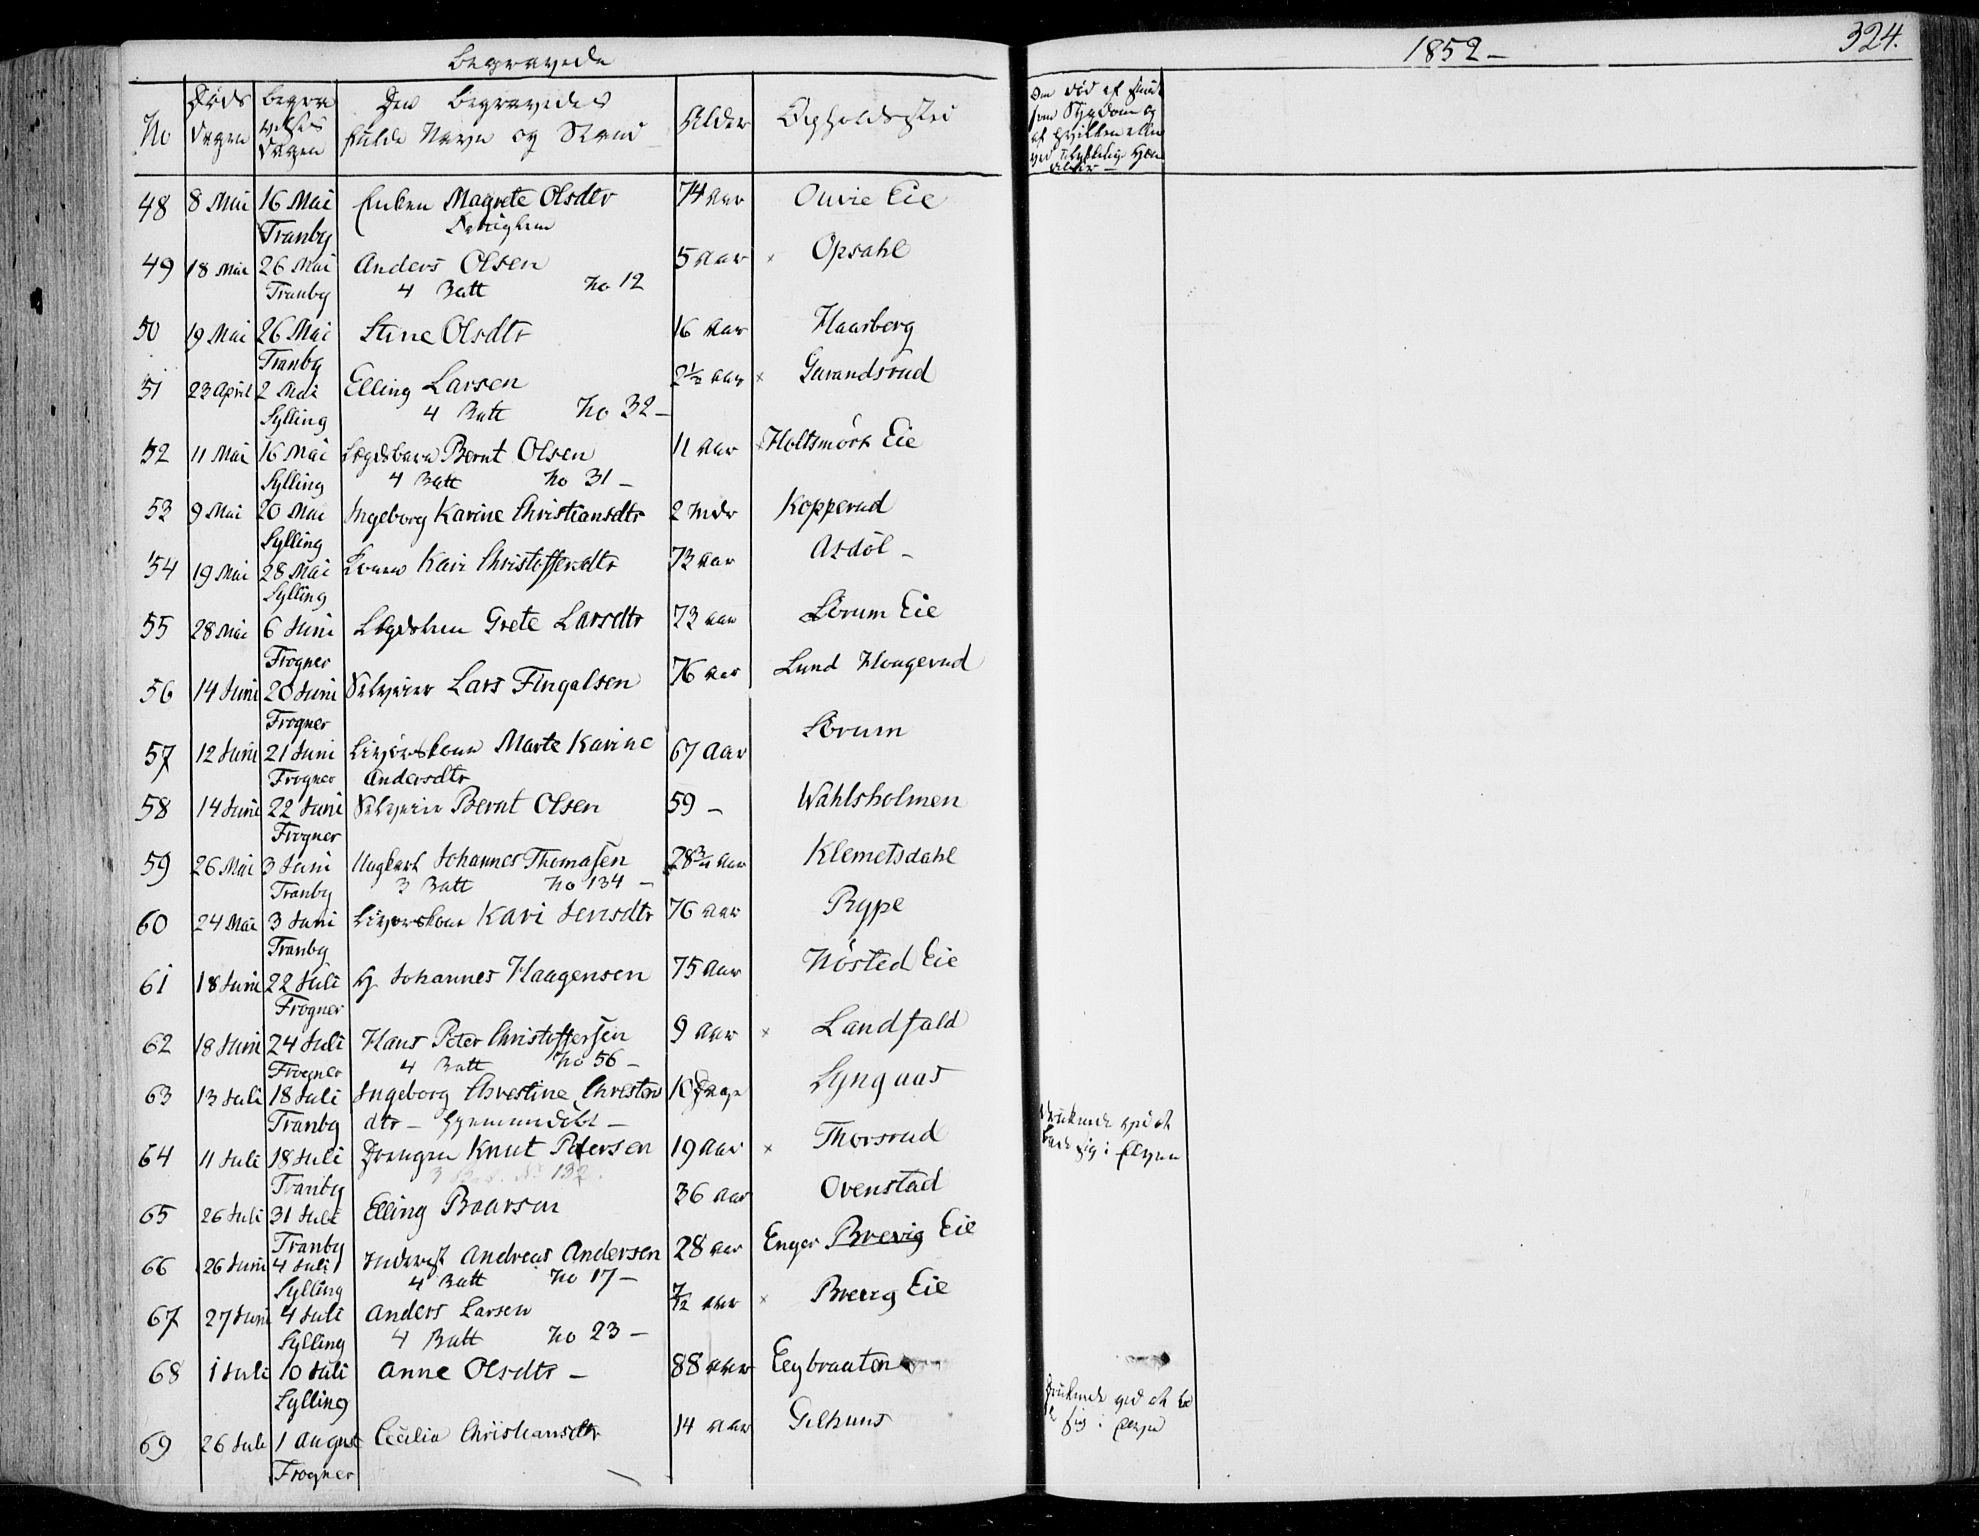 Begravede
1852 –
324.
No
Døds Dagen
Begravelses Dagen
Den Begravedes fulde Navn og Stand
Alder
Opholdsted
48 8 Mai 16 Mai Enken Magrete Olsdtr 74 Aar Ouvie Eie
Tranby
49 18 Mai 26 Mai Anders Olsen 5 Aar × Opsahl
Tranby 4 Batt No 12
50 19 Mai 26 Mai Stine Olsdtr 16 Aar Haarberg
Tranby
51 23 April 2 Mai Elling Larsen 2½ Aar × Gurandsrud
Sylling 4 Batt No 32 –
52 11 Mai 16 Mai Lægdsbarn Bernt Olsen 11 Aar × Holtsmørk Eie
Sylling 4 Batt No 31 –
53 9 Mai 20 Mai Ingeborg Karine Christiansdtr 2 Mdr Kopperud
Sylling
54 19 Mai 28 Mai Konen Kari Christoffersdtr 73 Aar Asdøl –
Sylling
55 28 Mai 6 Juni Lægdslem Grete Larsdtr 73 Aar Sørum Eie
Frogner
56 14 Juni 20 Juni Selveier Lars Fingalsen 76 Aar Lund Haugerud
Frogner
57 12 Juni 21 Juni Marte Karine 67 Aar Sørum
Frogner Andersdtr
58 14 Juni 22 Juni Selveier Bernt Olsen 59 – Wahlsholmen
Frogner
59 26 Mai 3 Juni Ungkarl Johannes Thomasen 28¾ Aar Klemetsdahl
Tranby 3 Batt No 134 –
60 24 Mai 3 Juni Kari Jensdtr 76 Aar Rype
Tranby
61 18 Juni 22 Juli Johannes Haagensen 75 Aar Nøsted Eie
Frogner
62 18 Juni 24 Juli Hans Peter Christoffersen 9 Aar × Landfald
Frogner 4 Batt No 56 –
63 13 Juli 18 Juli Ingeborg Christine Christens 10 Dage Lyngaas
Tranby dtr – Hjemmedøbt –
64 11 Juli 18 Juli Drengen Knut Petersen 19 Aar × Thorsrud Druknede ved at
bade sig i Elven
Tranby 3 Bat. No 132.
65 26 Juli 31 Juli Elling Baarsen 36 Aar Ovenstad
Tranby
66 26 Juni 4 Juli Inderst Andreas Andersen 28 Aar Enger Brevig Eie
Sylling 4 Batt No 17 –
67 27 Juni 4 Juli Anders Larsen 7/12 Aar × Brevig Eie
Sylling 4 Batt No 23 –
68 1 Juli 10 Juli Anne Olsdtr – 88 Aar Eegbraaten
Sylling
69 26 Juli 1 August Cecilia Christiansdtr 14 Aar Gilhuus Druknede ved at
sig i Elven
Frogner